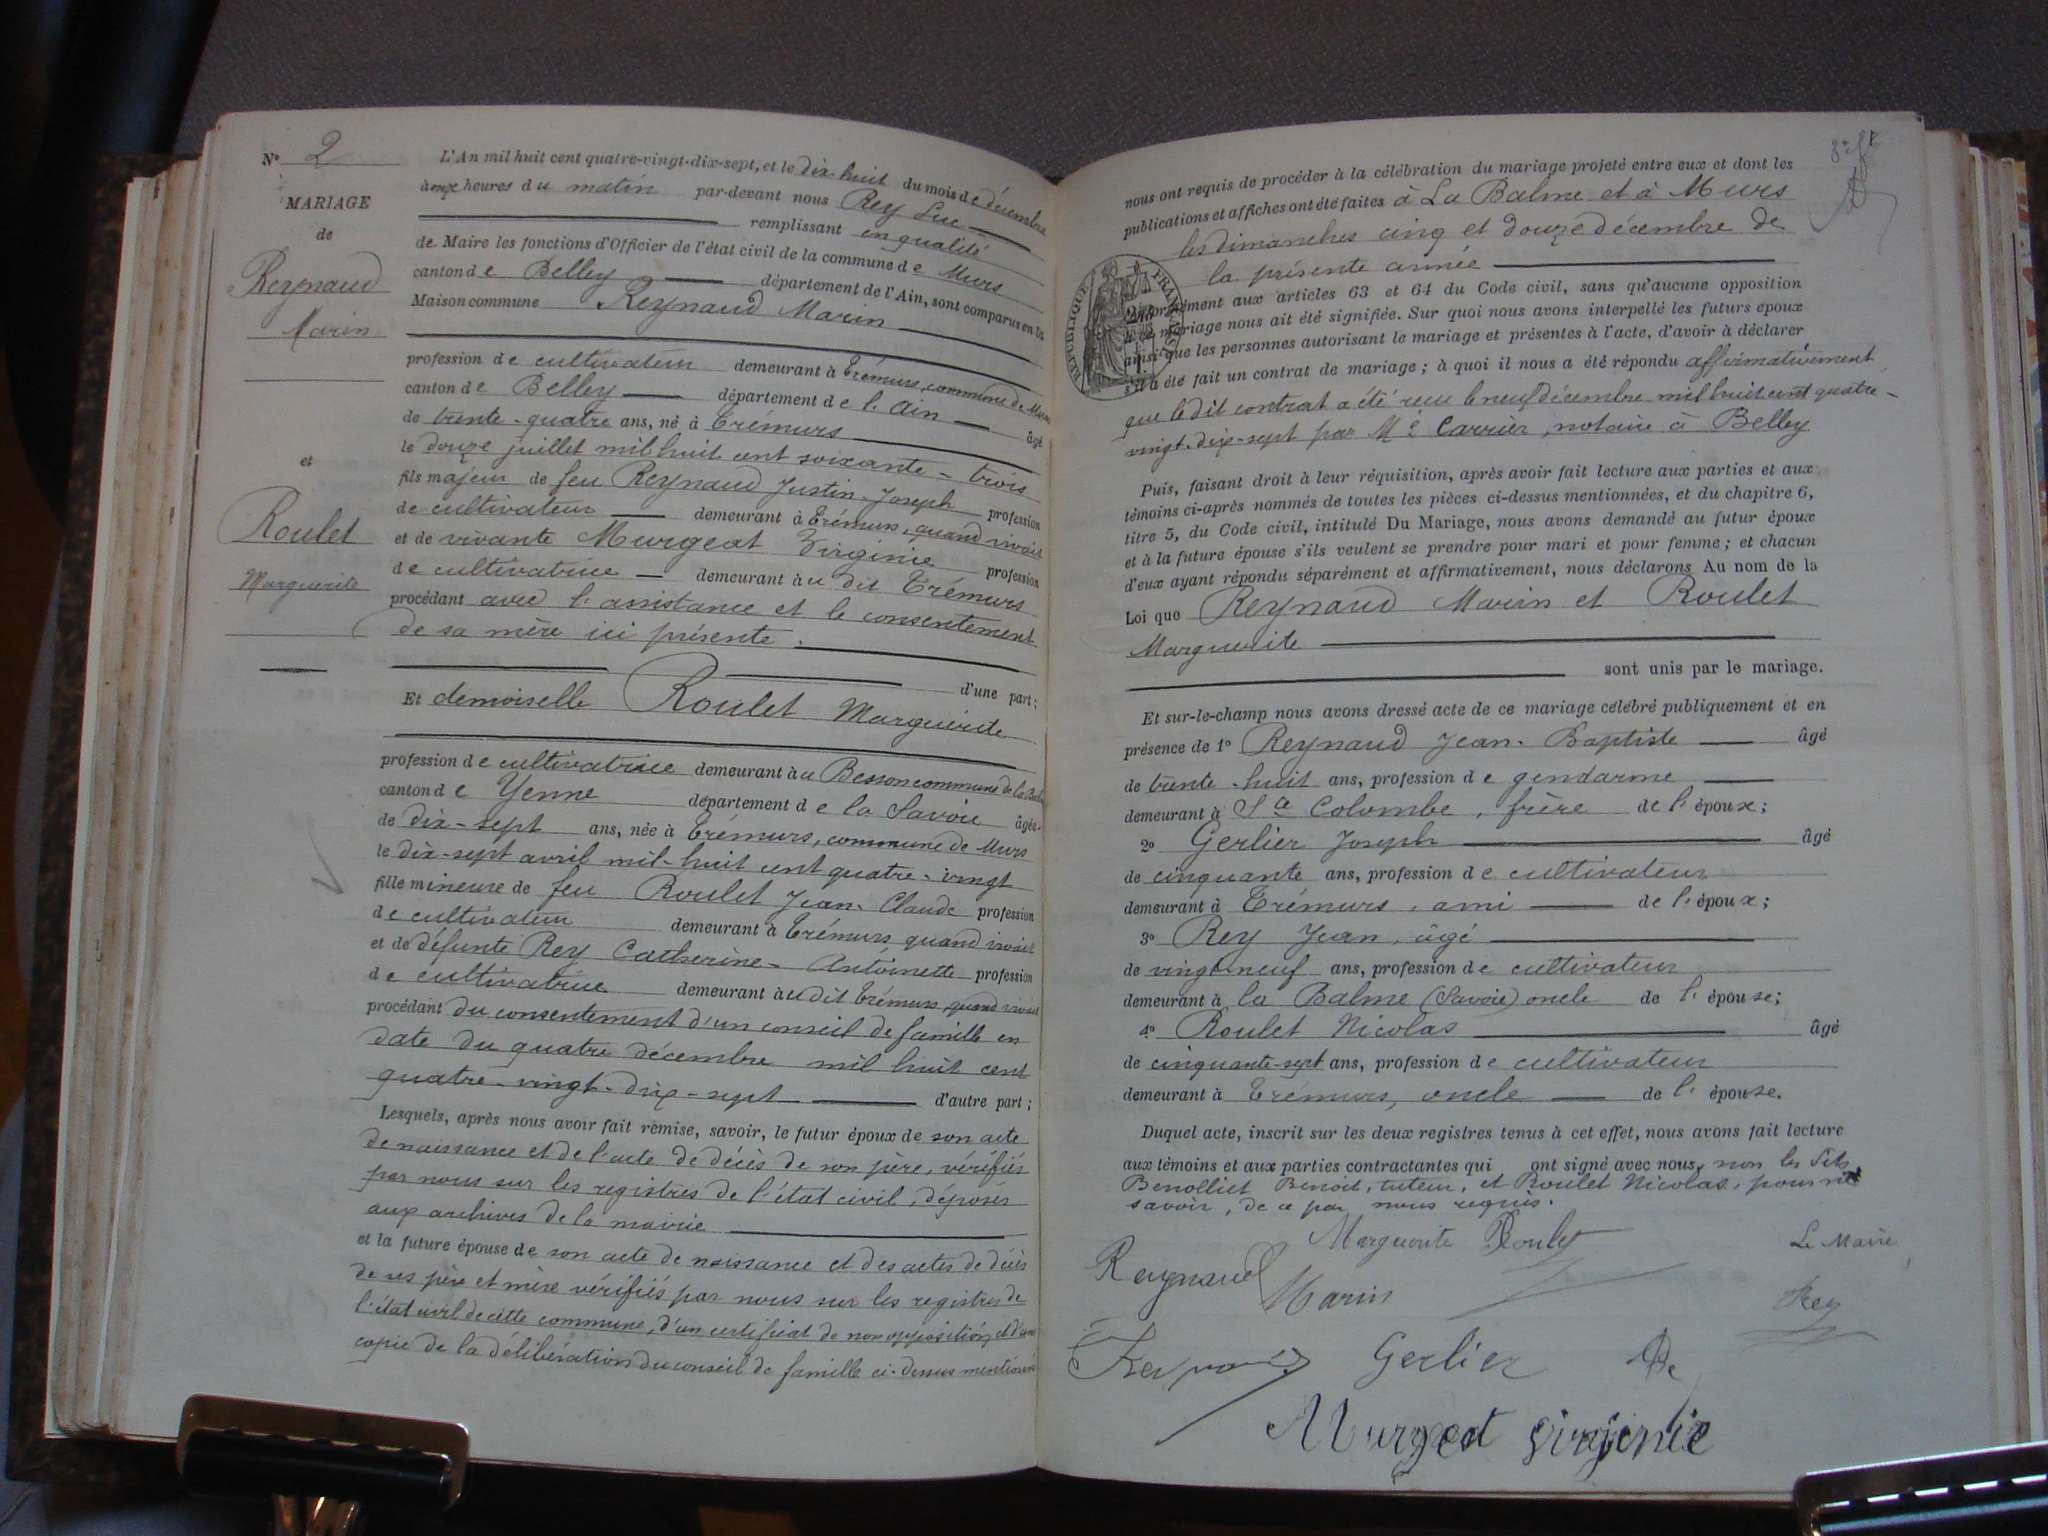 N° 2
MARIAGE
de
Reynaud
Marin
et
Roulet
Marguerite
L'An mil huit cent quatre-vingt-dix-sept, et le dix huit du mois de décembre
à onze heures du matin par-devant nous Rey Luc
remplissant en qualité
de Maire les fonctions d'Officier de l'état civil de la commune de Murs
canton de Belley département de l'Ain, sont comparus en la
Maison commune Reynaud Marin
profession de cultivateur demeurant à Trémurs, commune de Murs
canton de Belley département de l'Ain âgé
de trente-quatre ans, né à Trémurs
le douze juillet mil huit cent soixante-trois
fils majeur de feu Reynaud Justin-Joseph profession
de cultivateur demeurant à Trémurs, quand vivait
et de vivante Murgeat Virginie profession
de cultivatrice demeurant au dit Trémurs
procédant avec l'assistance et le consentement
de sa mère ici présente.
d'une part;
Et demoiselle Roulet Marguerite
profession de cultivatrice demeurant au Besson commune de la Balme
canton de Yenne département de la Savoie âgée
de dix-sept ans, née à Trémurs, commune de Murs
le dix-sept avril mil-huit cent quatre-vingt
fille mineure de feu Roulet Jean-Claude profession
de cultivateur demeurant à Trémurs quand vivait
et de défunte Rey Catherine-Antoinette profession
de cultivatrice demeurant au dit Trémurs quand vivait
procédant du consentement d'un conseil de famille en
date du quatre décembre mil huit cent
quatre-vingt-dix-sept d'autre part;
Lesquels, après nous avoir fait remise, savoir, le futur époux de son acte
de naissance et de l'acte de décès de son père, vérifiés
par nous sur les registres de l'état civil, déposés
aux archives de la mairie
et la future épouse de son acte de naissance et des actes de décès
de ses père et mère vérifiés par nous sur les registres de
l'état civil de cette commune, d'un certificat de non opposition, et d'une
copie de la délibération du conseil de famille ci-dessus mentionné
nous ont requis de procéder à la célébration du mariage projeté entre eux et dont les
publications et affiches ont été faites à La Balme et à Murs
les dimanches cinq et douze décembre de
la présente année
RÉPUBLIQUE FRANÇAISE
conformément aux articles 63 et 64 du Code civil, sans qu'aucune opposition
à ce mariage nous ait été signifiée. Sur quoi nous avons interpellé les futurs époux
ainsi que les personnes autorisant le mariage et présentes à l'acte, d'avoir à déclarer
s'il a été fait un contrat de mariage; à quoi il nous a été répondu affirmativement
que le dit contrat a été reçu le neuf décembre mil huit cent quatre-
vingt-dix-sept par Me Carrier, notaire à Belley
Puis, faisant droit à leur réquisition, après avoir fait lecture aux parties et aux
témoins ci-après nommés de toutes les pièces ci-dessus mentionnées, et du chapitre 6,
titre 5, du Code civil, intitulé Du Mariage, nous avons demandé au futur époux
et à la future épouse s'ils veulent se prendre pour mari et pour femme; et chacun
d'eux ayant répondu séparément et affirmativement, nous déclarons Au nom de la
Loi que Reynaud Marin et Roulet
Marguerite
sont unis par le mariage.
Et sur-le-champ nous avons dressé acte de ce mariage célébré publiquement et en
présence de 1° Reynaud Jean-Baptiste âgé
de trente-huit ans, profession de gendarme
demeurant à Ste Colombe, frère de l'époux;
2° Gerlier Joseph âgé
de cinquante ans, profession de cultivateur
demeurant à Trémurs, ami de l'époux;
3° Rey Jean, âgé
de vingt-neuf ans, profession de cultivateur
demeurant à la Balme (Savoie) oncle de l'épouse;
4° Roulet Nicolas âgé
de cinquante-sept ans, profession de cultivateur
demeurant à Trémurs, oncle de l'épouse.
Duquel acte, inscrit sur les deux registres tenus à cet effet, nous avons fait lecture
aux témoins et aux parties contractantes qui ont signé avec nous, non les dits
Benolliet Benoit, tuteur, et Roulet Nicolas, pour ne
savoir, de ce par nous requis.
Marguerite Roulet
Le Maire
Reynaud Marin
Rey
Gerlier
Murgeat Virginie